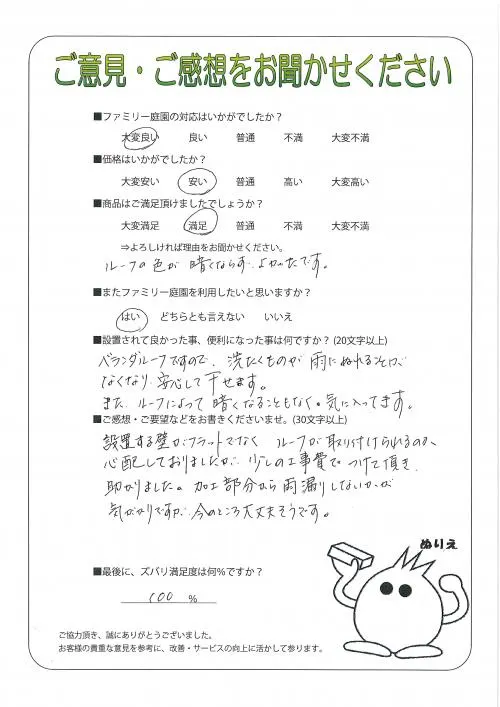 ご意見・ご感想をお聞かせください
■ファミリー庭園の対応はいかがでしたか？
大変良い 良い 普通 不満 大変不満
■価格はいかがでしたか？
大変安い 安い 普通 高い 大変高い
■商品はご満足頂けましたでしょうか？
大変満足 満足 普通 不満 大変不満
⇒よろしければ理由をお聞かせください。
ルーフの色が 暗くならず よかったです。
■またファミリー庭園を利用したいと思いますか？
はい どちらとも言えない いいえ
■設置されて良かった事、便利になった事は何ですか？(20文字以上)
ベランダルーフですので、洗たくものが 雨にぬれる
なくなり 安心して 干せます。
また、ルーフによって 暗くなることもなく。気に入ってます。
■ご感想・ご要望などをお書きくださいませ。(30文字以上)
設置する壁がフラットでなく ルーフが 取り付けられるのか、
心配しておりましたが、少しの工事費で つけて頂き、
助かりました。加工部分から雨漏りしないかが
気がかりですが、今のところ大丈夫そうです。
ぬりえ
■最後に、ズバリ満足度は何％ですか？
100 %
ご協力頂き、誠にありがとうございました。
お客様の貴重な意見を参考に、改善・サービスの向上に活かして参ります。